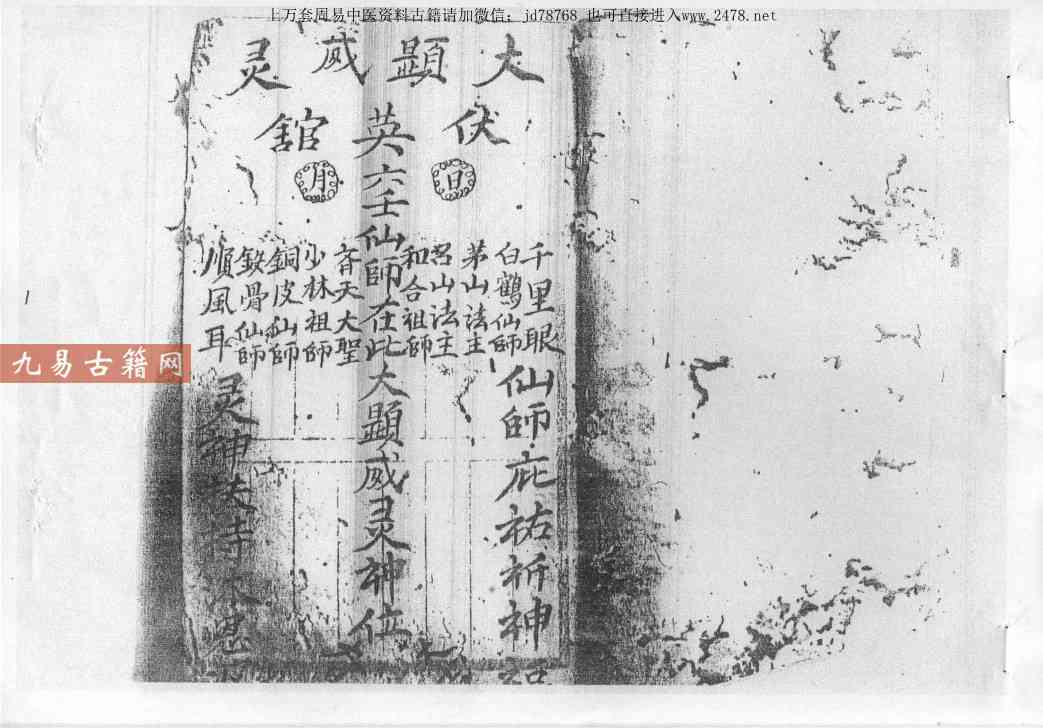 上万套周易中医资料古籍请加微信：jd78768 也可直接进入www.2478.net
大顕威灵
伏英舘
日月
千里眼
白鶴仙師
茅山法主
吕山法主
和合祖師
六壬仙師在此大顕威灵神位
斉天大聖
少林祖師
銅皮仙師
骨仙師
順風耳
仙師庇祐祈神
灵神扶持
九易古籍网